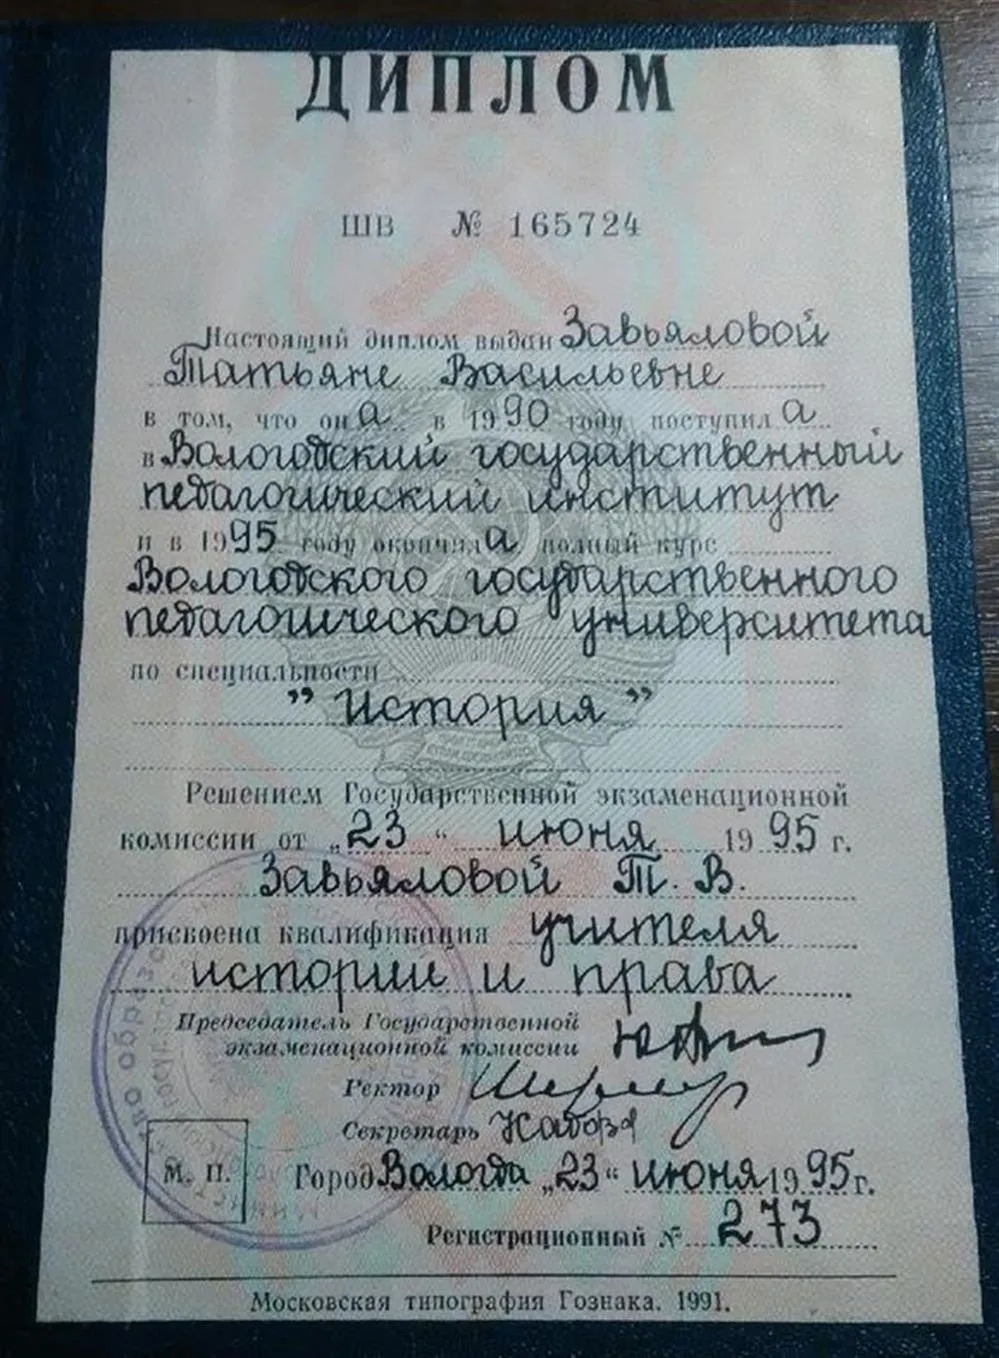 ДИПЛОМ
ШВ № 165724
Настоящий диплом выдан Завьяловой
Татьяне Васильевне
в том, что она в 1990 году поступила
в Вологодский государственный
педагогический институт
и в 1995 году окончила полный курс
Вологодского государственного
педагогического университета
по специальности
"История"
Решением Государственной экзаменационной
комиссии от „23“ июня 1995 г.
Завьяловой Т. В.
присвоена квалификация учителя
истории и права
Председатель Государственной
экзаменационной комиссии
Ректор
Секретарь
М. П. Город Вологда „23“ июня 1995 г.
Регистрационный № 273
Московская типография Гознака. 1991.